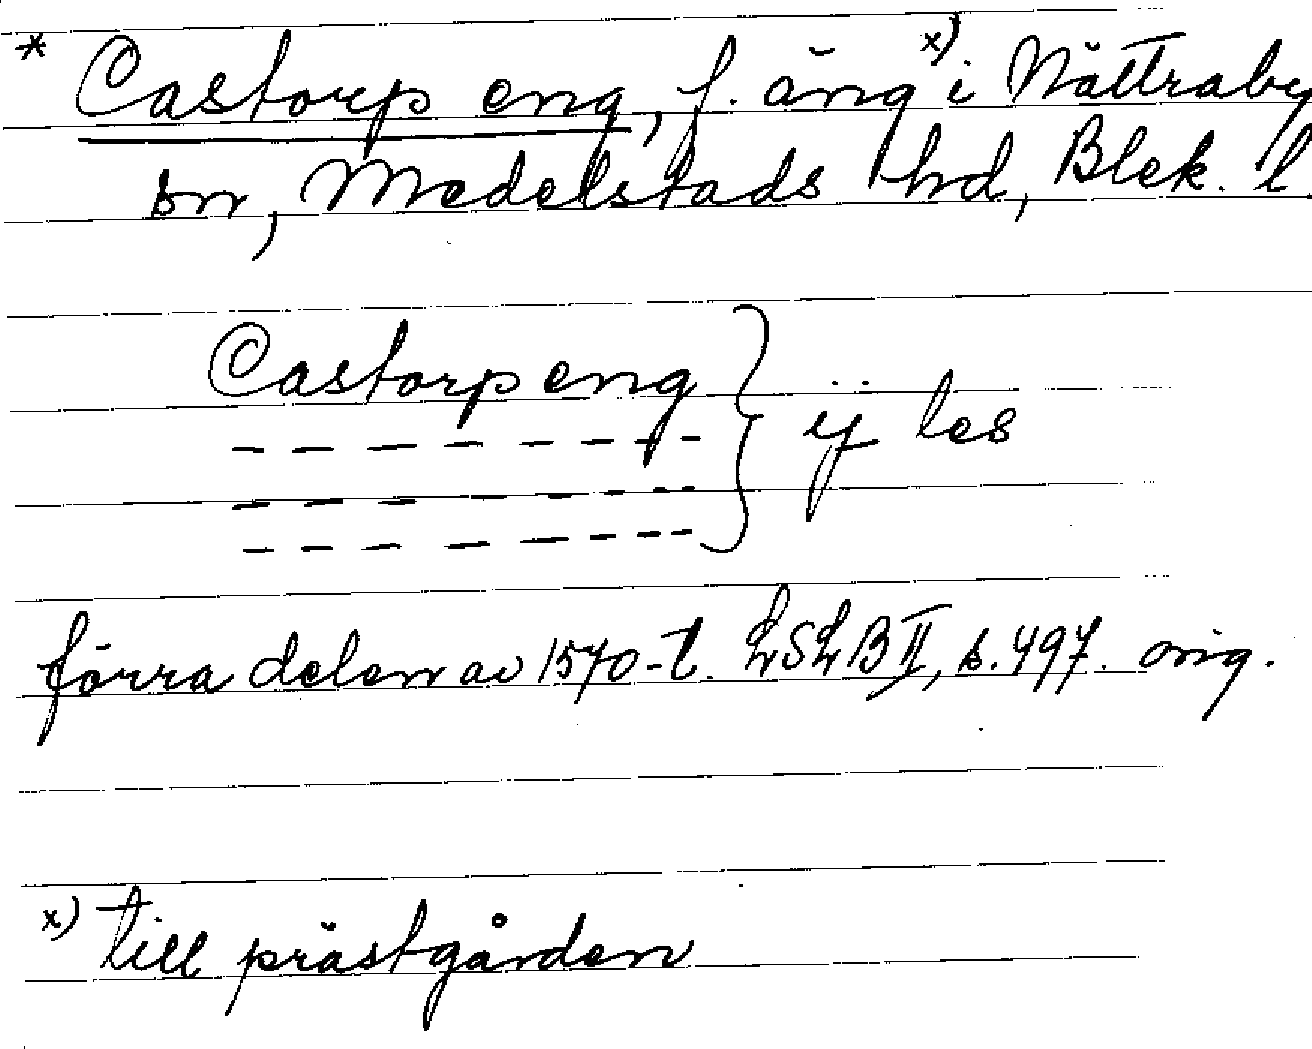 * Castorp eng, f. äng x) i Nättraby
sn, Medelstads hd, Blek. l
Castorp eng
– – – – – – – } ÿ les
– – – – – – –
– – – – – – –
förra delen av 1570-t. LSLB II, s. 497. orig.
x) till prästgården